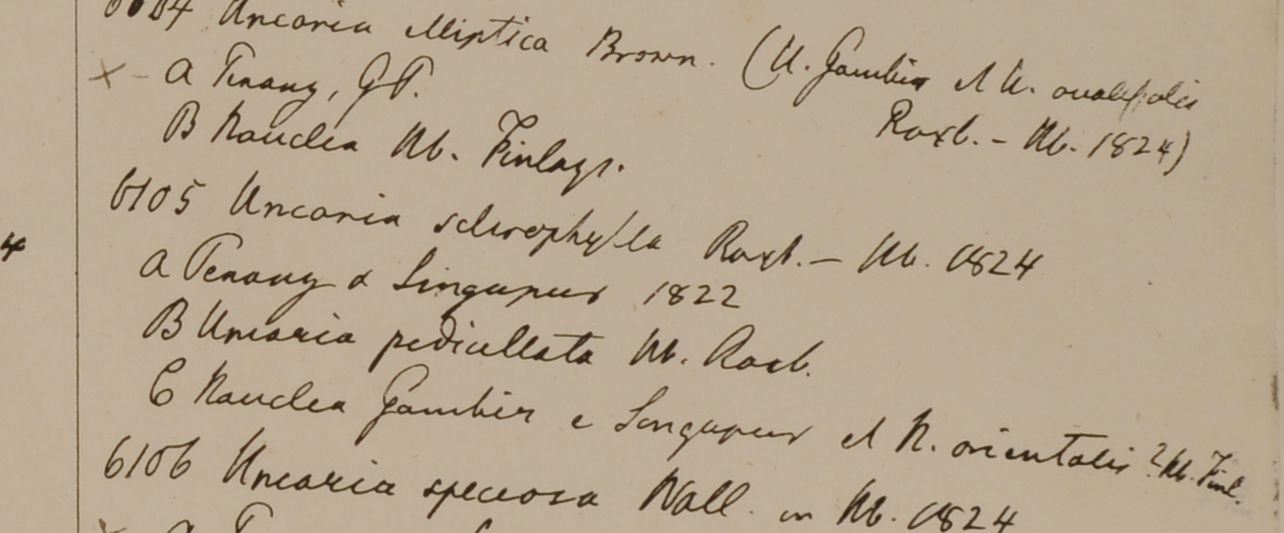 6104 Uncaria elliptica Brown. (U. Gambir et U. ovalifolia
Roxb. - Hb. 1824)
× - A Penang, GP.
B Nauclea Hb. Finlays.
6105 Uncaria sclerophylla Roxb. - Hb. 1824
4
A Penang & Singapur 1822
B Uncaria pedicellata Hb. Roxb.
C Nauclea Gambir e Singapur et N. orientalis? Hb. Finl.
6106 Uncaria speciosa Wall. in Hb. 1824